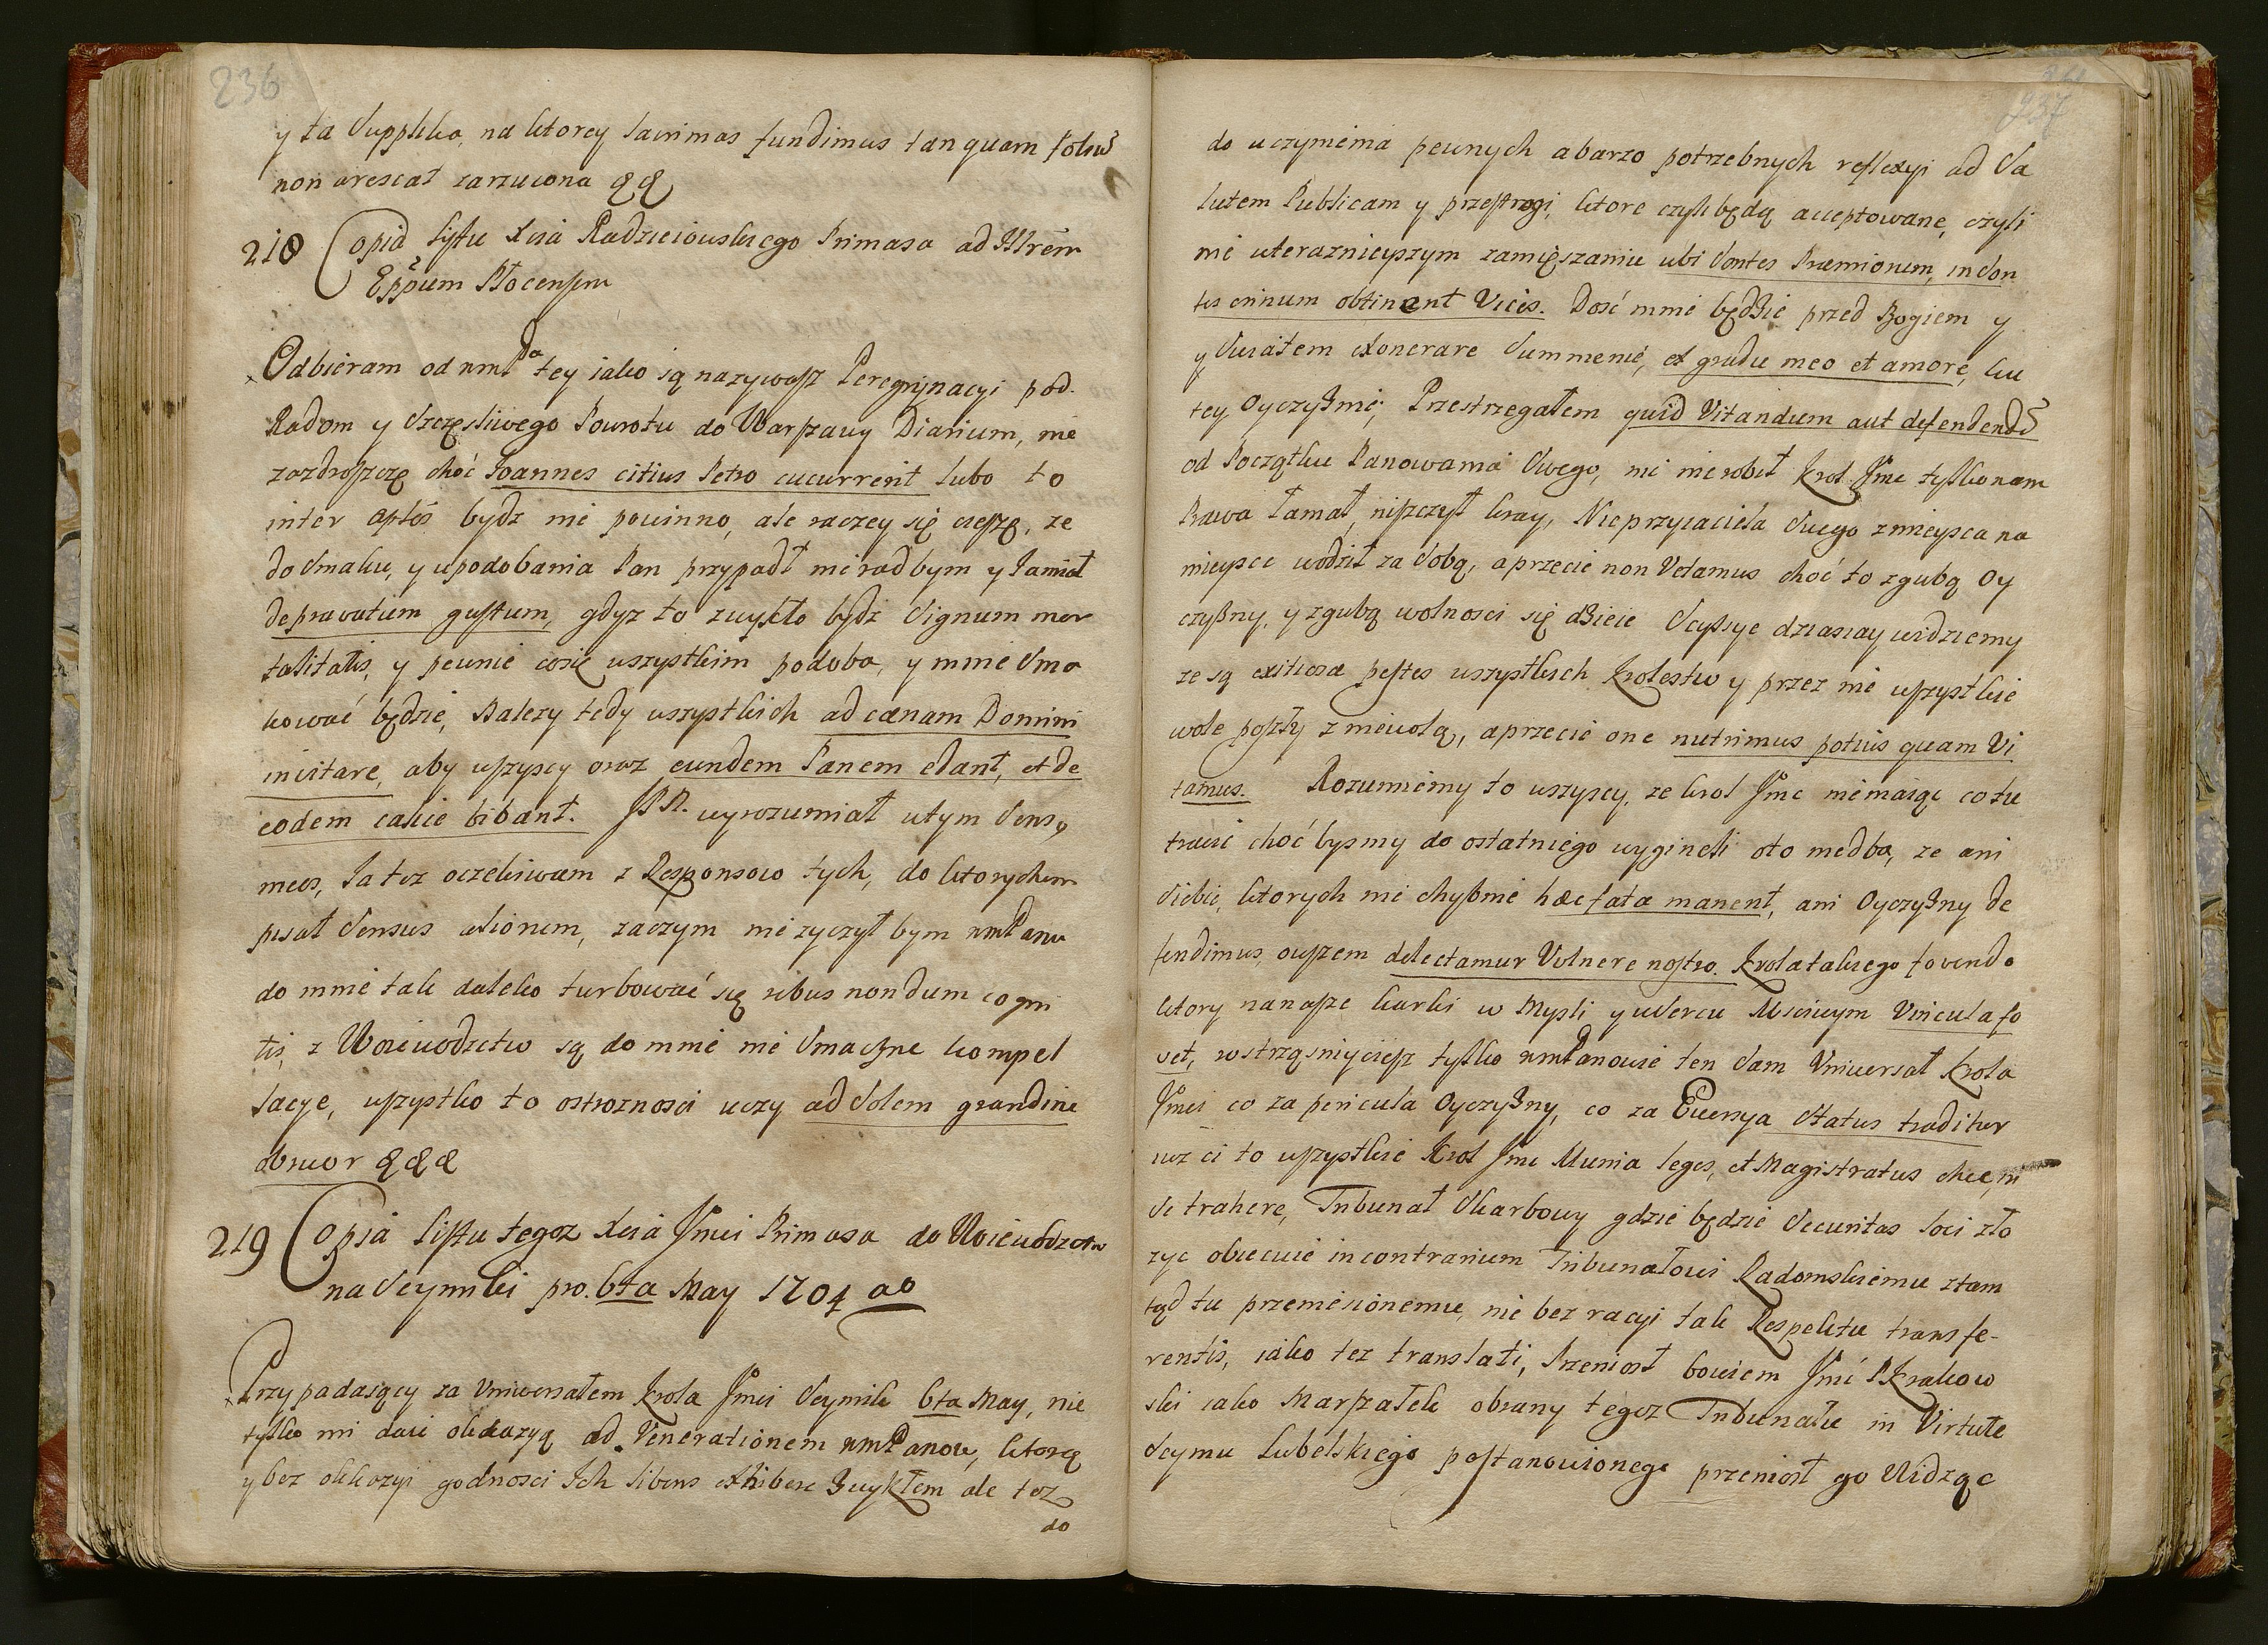 236
y ta Supplika, na ktorey lacrimas fundimus tanquam foliu
non arescat zarzucona
218 Copia listu Xcia Radzieiowskiego Primasa ad Illrem
Eppum Płocensem
Odbieram od wmPa tey iako ią nazywasz Peregrynacyi pod
Radom y szczęsliwego Powrotu do Warszawy Diarium, nie
zazdroszczę choć Joannes citius Petro cucurrerit lubo to
inter aptos bydz nie powinno, ale raczey się cieszę, ze
do smaku, y upodobania Pan przypadł nie rad bym y Ja miał
depravatum gustum, gdyz to zwykło bydz signum mor
talitatis, y pewnie cośię wszystkim podoba, y mnie sma
kować będzie, Nalezy tedy wszystkich ad cænam Domini
invitare, aby wszyscy oraz eundem Panem edant, et de
eodem calice bibant. JM. wyrozumiał w tym sens,
meos, Ja tez oczekiwam z Responsow tych, do ktorychem
pisał sensus aliorum, zaczym nie zyczył bym wmPanu
do mnie tak daleko turbować się rebus nondum cogni
tis, z Woiewodztw są do mnie nie smaczne kompel
lacye, wszystko to ostroznosci uczy ad solem grandine
obruor
219 Copia listu tegoz Xcia Jmci Primasa do Woiewodztw
na Seymiki pro 6ta May 1704 ao
Przypadaiący za Uniwersałem Krola Jmci Seymik 6ta May, nie
tylko mi daie okkazyą ad Venerationem wmPanow, ktorą
y bez okkazyi godnosci Ich libens exhibere zwykłem ale tez
do
237
do uczynienia pewnych a barzo potrzebnych reflexyi ad Sa
lutem Publicam y przestrogi, ktore czyli będą acceptowane, czyli
nie w teraznieyszym zamięszaniu ubi sontes Præmiorum, inson
tes criminum obtinent Vices. Dosć mnie będzie przed Bogiem y
y swiatem exonerare summenie, ex gradu meo et amore, ku
tey Oyczyznie, Przestrzegałem quid Vitandum aut defendendu
od Początku Panowania swego, nic nie robił Krol Jmc tylko nam
Prawa łamał, niszczył kray, Nieprzyiaciela swego z mieysca na
mieysce wodził za sobą, a przecie non Vetamus choć to zgubą Oy
czyzny, y zgubą wolnosci się dzieie Scyssye dzisiay widziemy
ze są exitiosæ pestes wszystkich Krolestw y przez nie wszystkie
wole poszły z niewolą, a przecie one nutrimus potius quam Vi
tamus. Rozumiemy to wszyscy, ze krol Jmc nie maiąc co tu
tracić choć bysmy do ostatniego wygineli oto niedba, ze ani
siebie, ktorych nie chybnie hæc fata manent, ani Oyczyzny de
fendimus, owszem delectamur Vulnere nostro. Krola takiego fovendo
ktory na nasze karki w Mysli y w sercu Msciwym Vincula fo
vet, wstrząsniycież tylko wmPanowie ten sam Uniwersał Krola
Jmci co za pericula Oyczyzny, co za Ewersya status traditur
wz ci to wszystkie Krol Jmc Munia leges, et Magistratus chce, in
se trahere, Tribunał Skarbowy gdzie będzie Securitas loci zło
zyc obiecuie in contrarium Tribunałowi Radomskiemu ztam
tąd tu przeniesionemu, nie bez racyi tak Respektu transfe-
rentis, iako tez translati, Przeniosł bowiem Jmć P Krakow
ski iako Marszałek obrany tegoz Tribunału in Virtute
Seymu Lubelskiego postanowionego przeniosł go Widząc